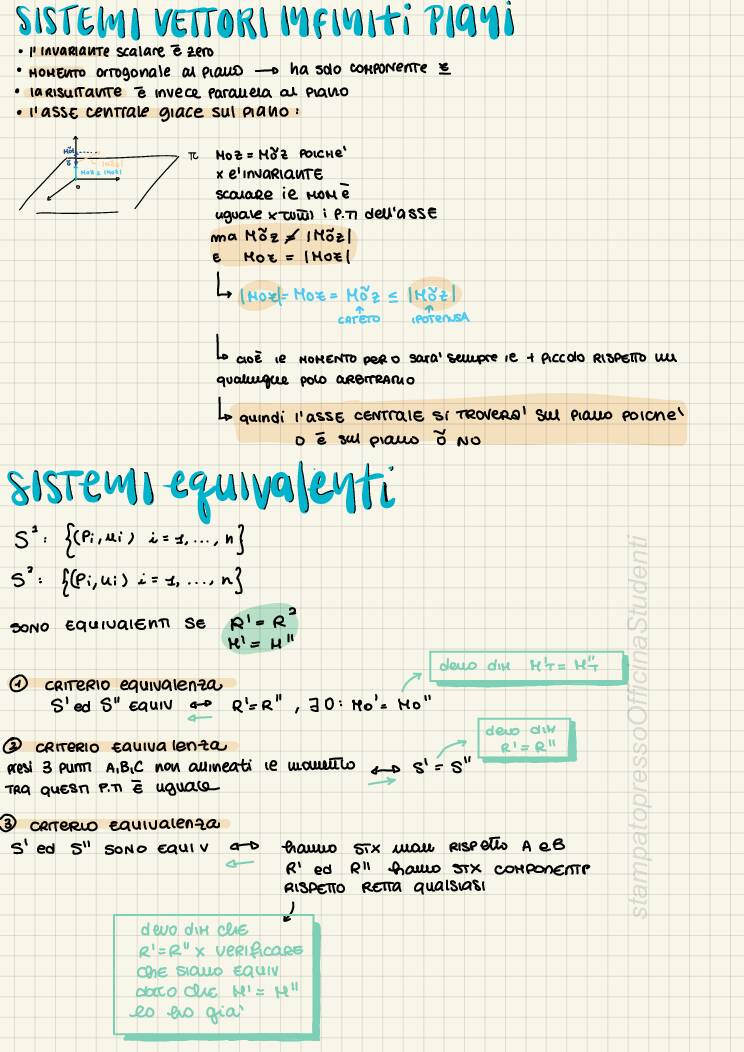 SISTEMI VETTORI INFINITI PIANI
• l'INVARIANTE scalare è zero
• MOMENTO ortogonale al PIANO → ha solo COMPONENTE z
• la RISULTANTE è invece Parallela al PIANO
• l'asse centrale giace sul piano:
π
O
MOZ = MÕZ POICHE'
x e' INVARIANTE
SCALARE il MOM è
uguale x TUTTI i P.TI dell'asse
ma MÕZ ≠ |MÕZ|
E MOZ = |MOZ|
|MOZ| = MOZ = MÕZ ≤ |MÕZ|
CATETO IPOTENUSA
cioè il MOMENTO PER O sara' sempre il + piccolo RISPETTO un
qualunque polo ARBITRARIO
quindi l'ASSE CENTRALE SI TROVERA' sul piano poiche'
O è sul piano Õ NO
SISTEMI equivalenti
S¹: {(Pi, ui) i = 1, ..., n}
S²: {(Pi, ui) i = 1, ..., n}
SONO EQUIVALENTI SE R' = R²
M' = M''
devo DIM M'T = M''T
① CRITERIO equivalenza
S' ed S'' EQUIV ⇔ R' = R'', ∃ O: Mo' = Mo''
devo DIM
R' = R''
② CRITERIO EQUIVALENZA
presi 3 PUNTI A,B,C non allineati il momento ⇔ S' = S''
TRA QUESTI P.TI è uguale
③ CRITERIO EQUIVALENZA
S' ed S'' SONO EQUIV ⇔ hanno STX mom RISPETTO A e B
R' ed R'' hanno STX COMPONENTE
RISPETTO RETTA QUALSIASI
devo DIM CHE
R' = R'' x VERIFICARE
CHE SIANO EQUIV
dato che M' = M''
lo ho già
stampatopressoOfficinaStudenti